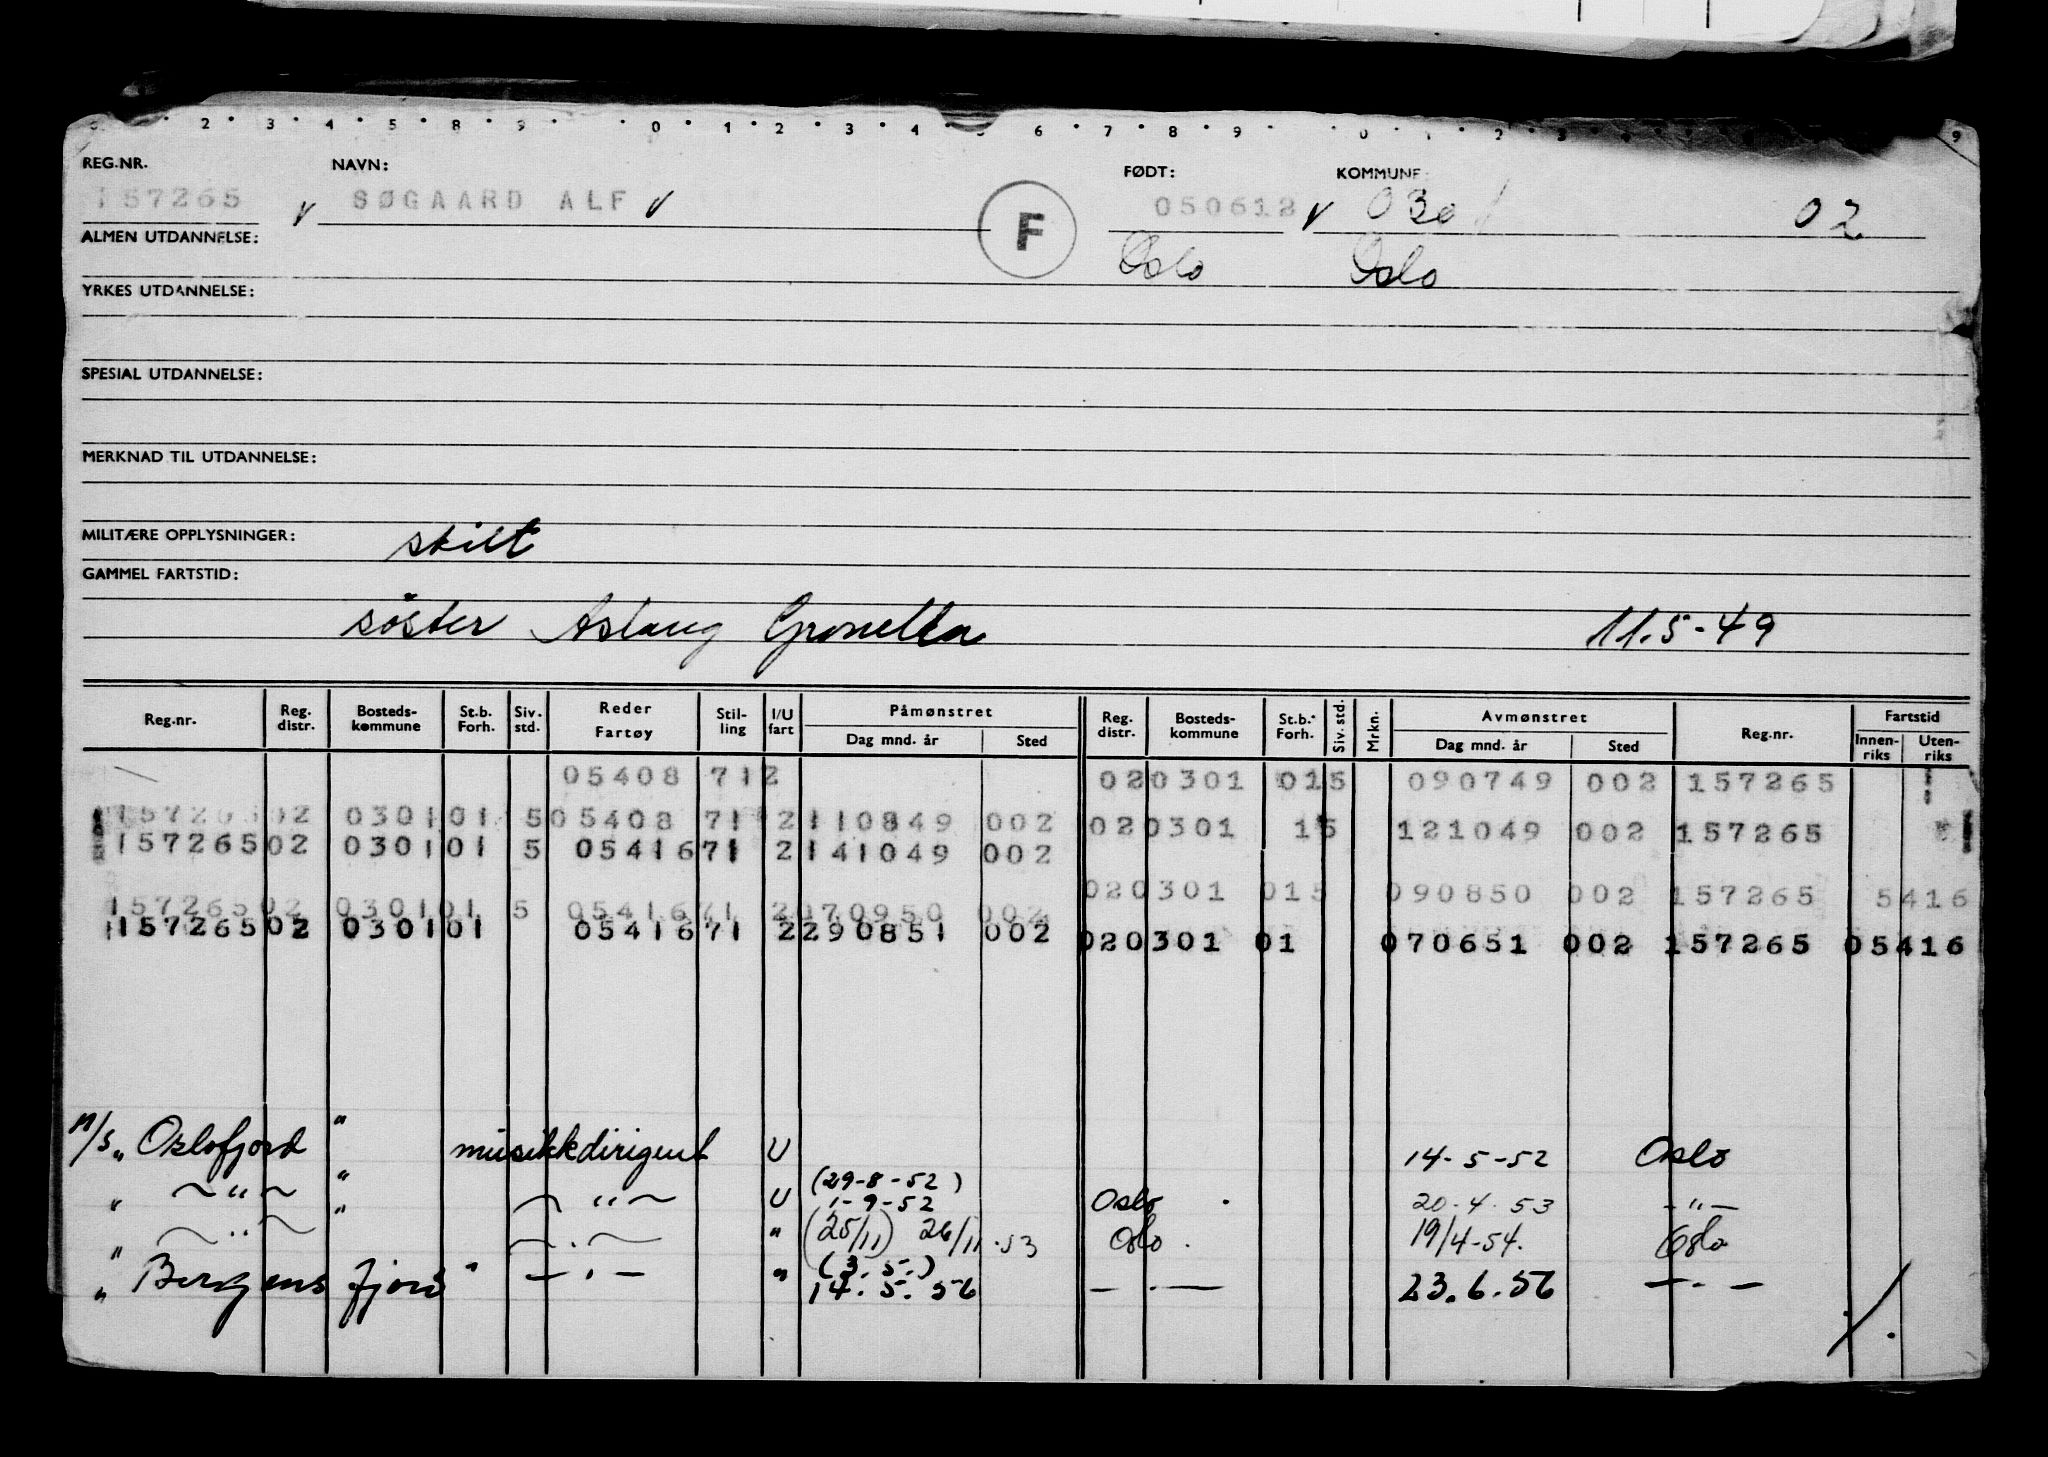 2 3 4 5 8 9 0 1 2 3 4 5 6 7 8 9 0 1 2 3 9
REG.NR. NAVN: FØDT: KOMMUNE:
157265 v SØGAARD ALF v F 050612 v 030 02
ALMEN UTDANNELSE: Oslo Oslo
YRKES UTDANNELSE:
SPESIAL UTDANNELSE:
MERKNAD TIL UTDANNELSE:
MILITÆRE OPPLYSNINGER: skilt
GAMMEL FARTSTID:
søster Aslaug 11.5-49
Reg.nr. Reg. distr. Bosteds-kommune St.b. Forh. Siv. std. Reder Fartøy Stil-ling I/U fart Påmønstret Dag mnd. år Sted Reg. distr. Bosteds-kommune St.b. Forh. Siv. std. Mrkn. Avmønstret Dag mnd. år Sted Reg.nr. Fartstid Innen-riks Uten-riks
05408 712 020301 015 090749 002 157265
15726502 030101 505408 71 2110849 002 020301 15 121049 002 157265
15726502 030101 5 0541671 2141049 002
020301 015 090850 002 157265 5416
15726502 030101 5 0541671 2070950 002
15726502 030101 0541671 2290851 002 020301 01 070651 002 157265 05416
M/S „Oslofjord" musikkdirigent U 14-5-52 Oslo
(29-8-52)
„ ~"~ " ~"~ U 1-9-52 Oslo 20.4.53 -"-
„ ~"~ " ~"~ " (25/11) 26/11.53 Oslo. 19/4-54. Oslo
(3.5.)
„ Bergensfjord" -"- " 14.5.56 -"- 23.6.56 -"-